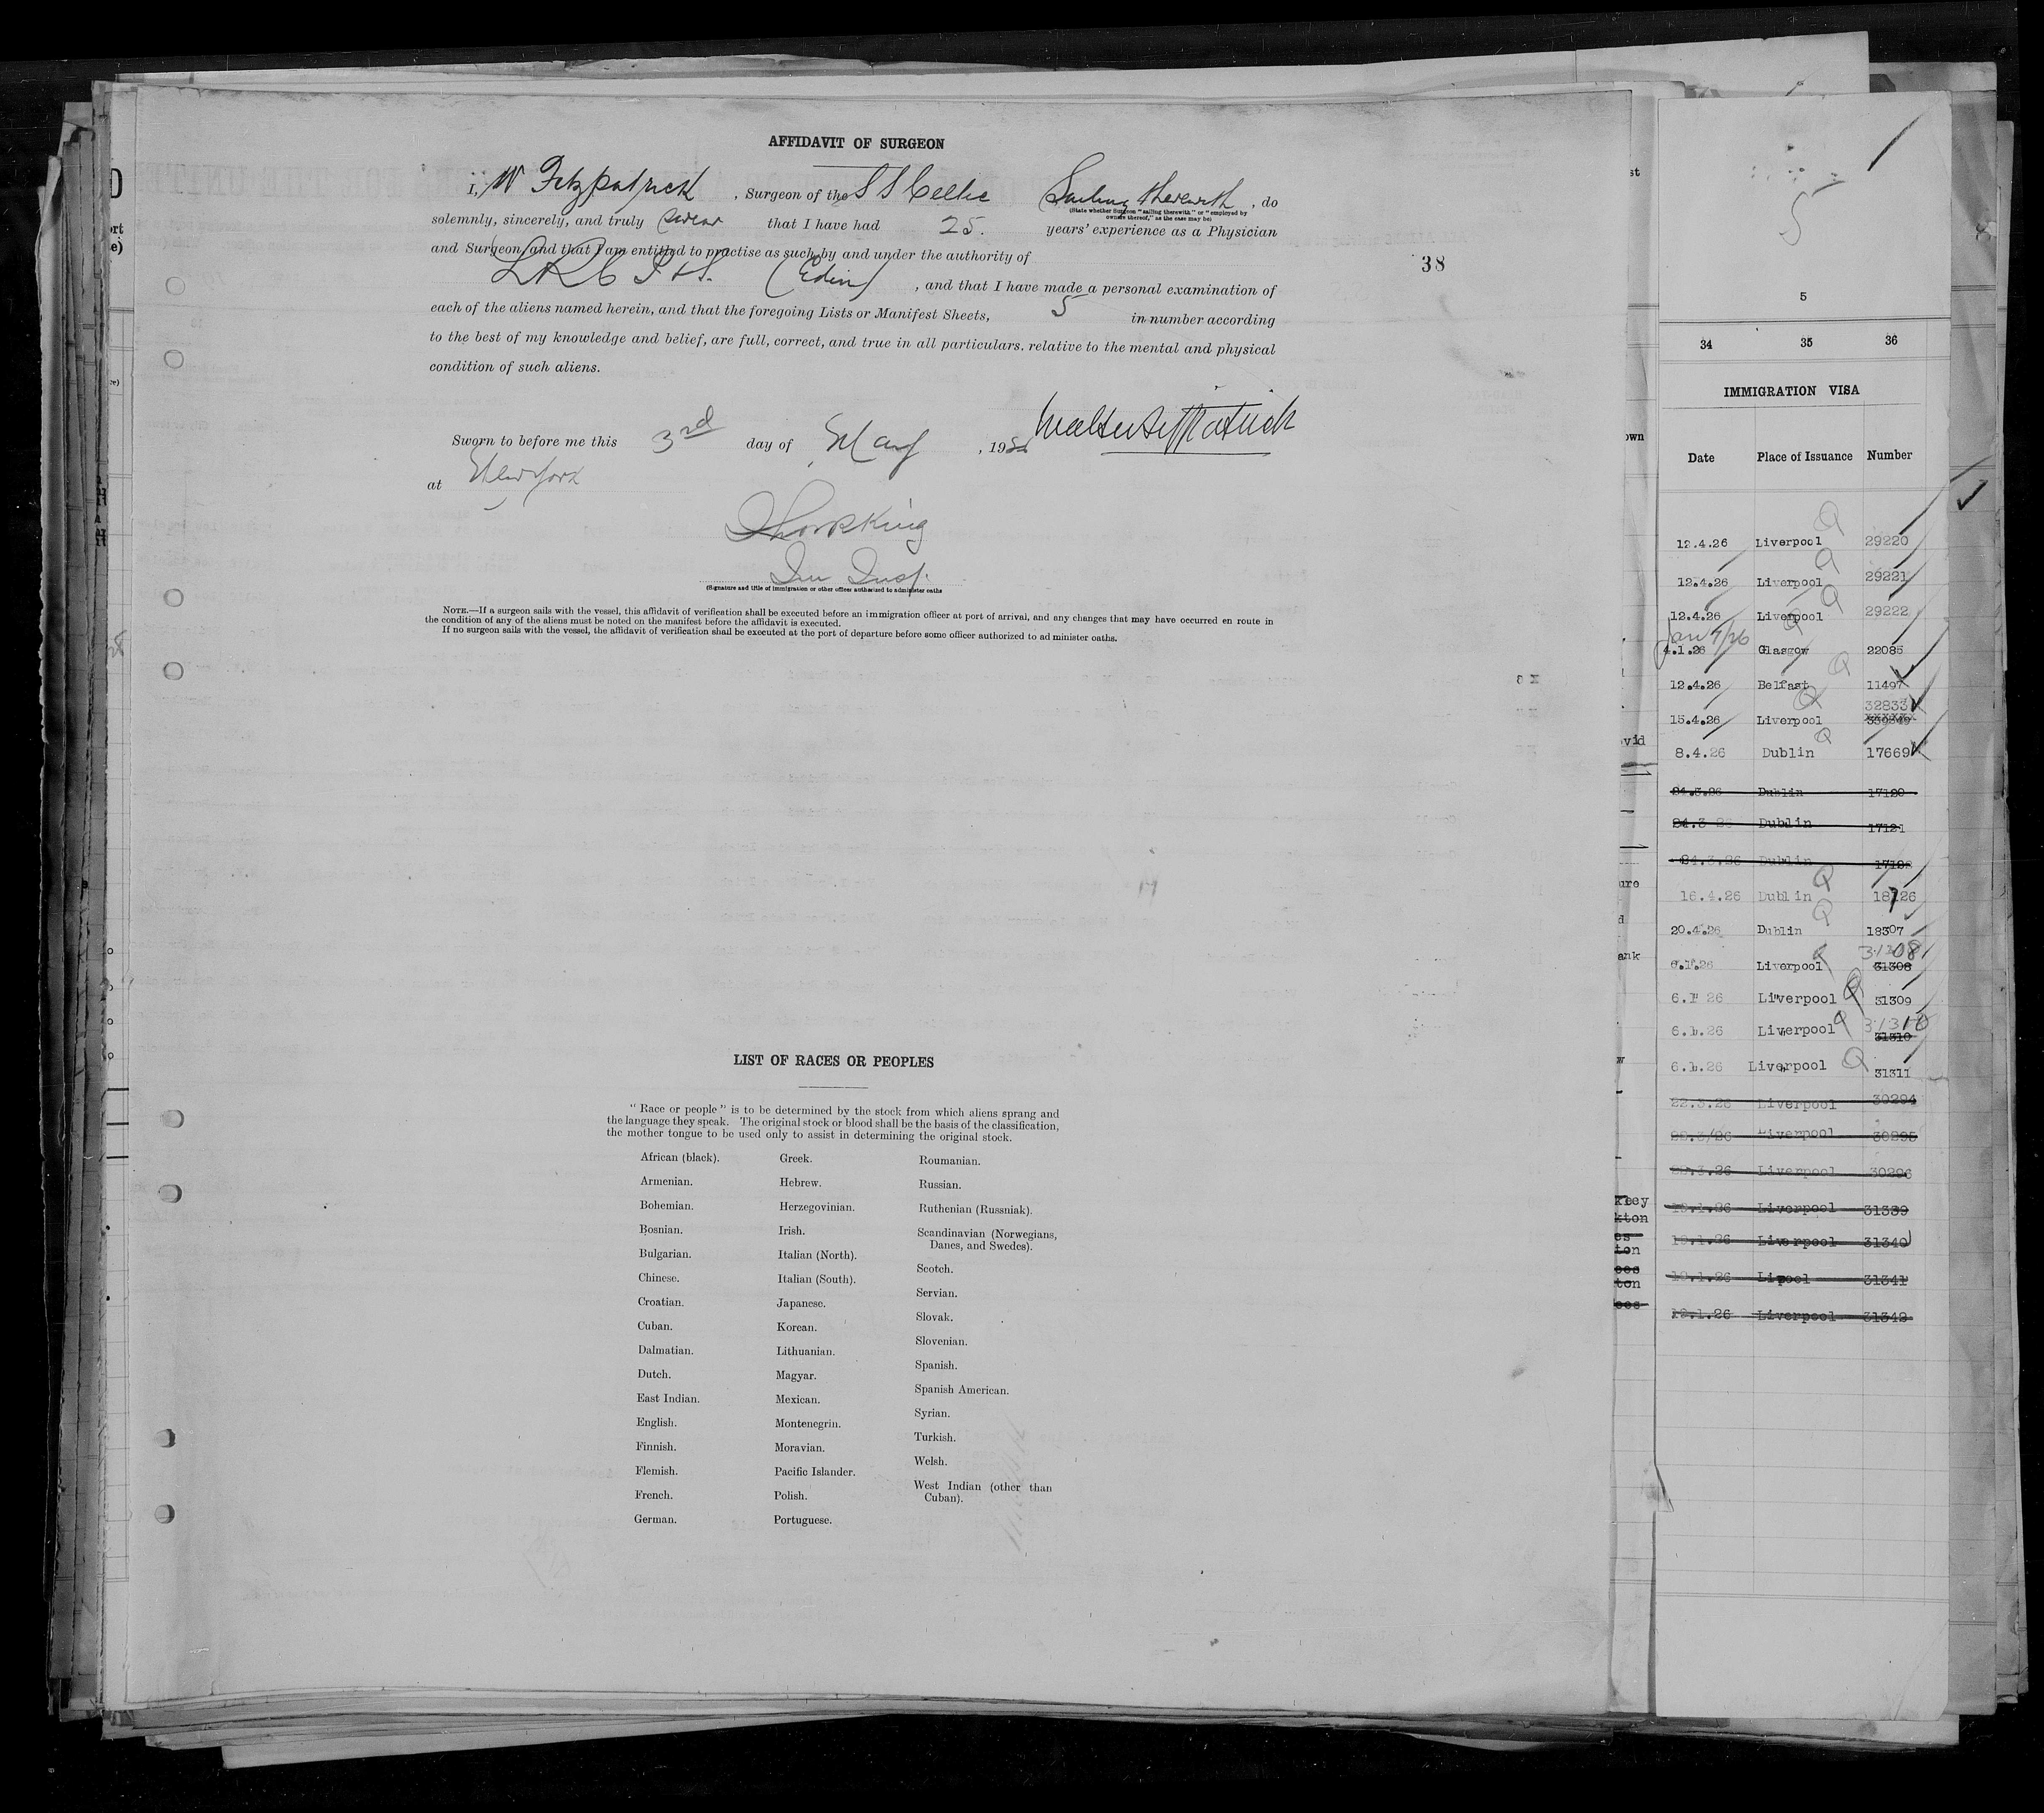 AFFIDAVIT OF SURGEON
I, W Fitzpatrick , Surgeon of the S S Celtic Sailing therewith , do
(State whether Surgeon "sailing therewith" or "employed by
owners thereof," as the case may be)
solemnly, sincerely, and truly swear that I have had 25. years' experience as a Physician
and Surgeon, and that I am entitled to practise as such by and under the authority of
LRCP & S. (Edin) , and that I have made a personal examination of
38
each of the aliens named herein, and that the foregoing Lists or Manifest Sheets, 5 in number according
to the best of my knowledge and belief, are full, correct, and true in all particulars. relative to the mental and physical
condition of such aliens.
Walter Fitzpatrick
Sworn to before me this 3rd day of May , 19
at New York
Im Insp.
(Signature and title of immigration or other officer authorized to administer oaths
NOTE.—If a surgeon sails with the vessel, this affidavit of verification shall be executed before an immigration officer at port of arrival, and any changes that may have occurred en route in
the condition of any of the aliens must be noted on the manifest before the affidavit is executed.
If no surgeon sails with the vessel, the affidavit of verification shall be executed at the port of departure before some officer authorized to ad minister oaths.
LIST OF RACES OR PEOPLES
"Race or people" is to be determined by the stock from which aliens sprang and
the language they speak. The original stock or blood shall be the basis of the classification,
the mother tongue to be used only to assist in determining the original stock.
African (black).
Armenian.
Bohemian.
Bosnian.
Bulgarian.
Chinese.
Croatian.
Cuban.
Dalmatian.
Dutch.
East Indian.
English.
Finnish.
Flemish.
French.
German.
Greek.
Hebrew.
Herzegovinian.
Irish.
Italian (North).
Italian (South).
Japanese.
Korean.
Lithuanian.
Magyar.
Mexican.
Montenegrin.
Moravian.
Pacific Islander.
Polish.
Portuguese.
Roumanian.
Russian.
Ruthenian (Russniak).
Scandinavian (Norwegians,
Danes, and Swedes).
Scotch.
Servian.
Slovak.
Slovenian.
Spanish.
Spanish American.
Syrian.
Turkish.
Welsh.
West Indian (other than
Cuban).
5
5
34 35 36
IMMIGRATION VISA
Date Place of Issuance Number
12.4.26 Liverpool 29220
12.4.26 Liverpool 29221
12.4.26 Liverpool 29222
Jan 4/26
4.1.26 Glasgow 22085
12.4.26 Belfast 11497
32833
15.4.26 Liverpool
8.4.26 Dublin 17669
24.3.26 Dublin 17120
24.3 26 Dublin 17121
24.3.26 Dublin 17122
16.4.26 Dublin 18126
20.4.26 Dublin 18307
31308
6.1.26 Liverpool 31308
6.1 26 Liverpool 31309
31310
6.1.26 Liverpool 31310
6.1.26 Liverpool 31311
22.3.26 Liverpool 30294
22.3/26 Liverpool 30295
22.3.26 Liverpool 30296
19.1.26 Liverpool 31339
19.1.26 Liverpool 31340
19.1.26 Lipool 31341
19.1.26 Liverpool 31342